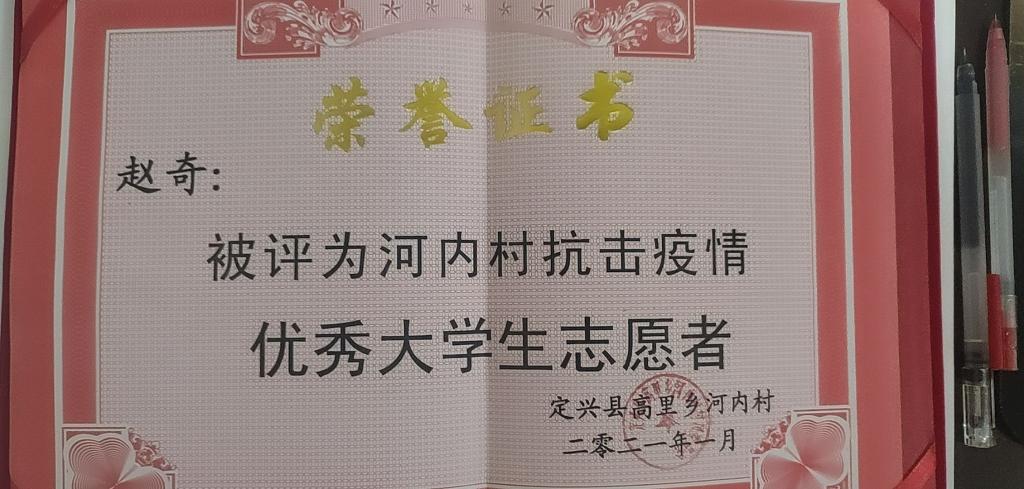 荣誉证书
赵奇:
被评为河内村抗击疫情
优秀大学生志愿者
定兴县高里乡河内村
二零二一年一月